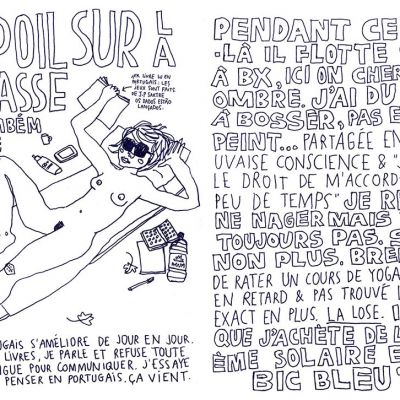 POIL SUR LA
ASSE
MBÉM
1ER LIVRE LU EN
PORTUGAIS : LES
JEUX SONT FAITS
DE J.P SARTRE
OS DADOS ESTÃO
LANÇADOS.
UGAIS S'AMÉLIORE DE JOUR EN JOUR.
LIVRES, JE PARLE ET REFUSE TOUTE
GUE POUR COMMUNIQUER. J'ESSAYE
PENSER EN PORTUGAIS. ÇA VIENT.
PENDANT CE
-LÀ IL FLOTTE
À BX, ICI ON CHER
OMBRE. J'AI DU
À BOSSER, PAS E
PEINT... PARTAGÉE EN
UVAISE CONSCIENCE & "J
LE DROIT DE M'ACCORD
PEU DE TEMPS" JE RE
NE NAGER MAIS
TOUJOURS PAS. S
NON PLUS. BREF
DE RATER UN COURS DE YOGA
EN RETARD & PAS TROUVÉ L
EXACT EN PLUS. LA LOSE. I
QUE J'ACHÈTE DE L
ÈME SOLAIRE E
BIC BLEU